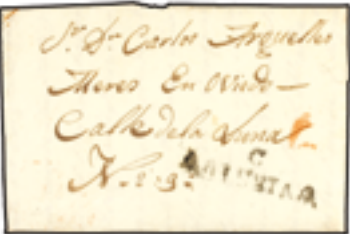 Sr. Dn Carlos Arguelles
Meres En Oviedo —
Calle de la Luna
N. 2. 9.
C